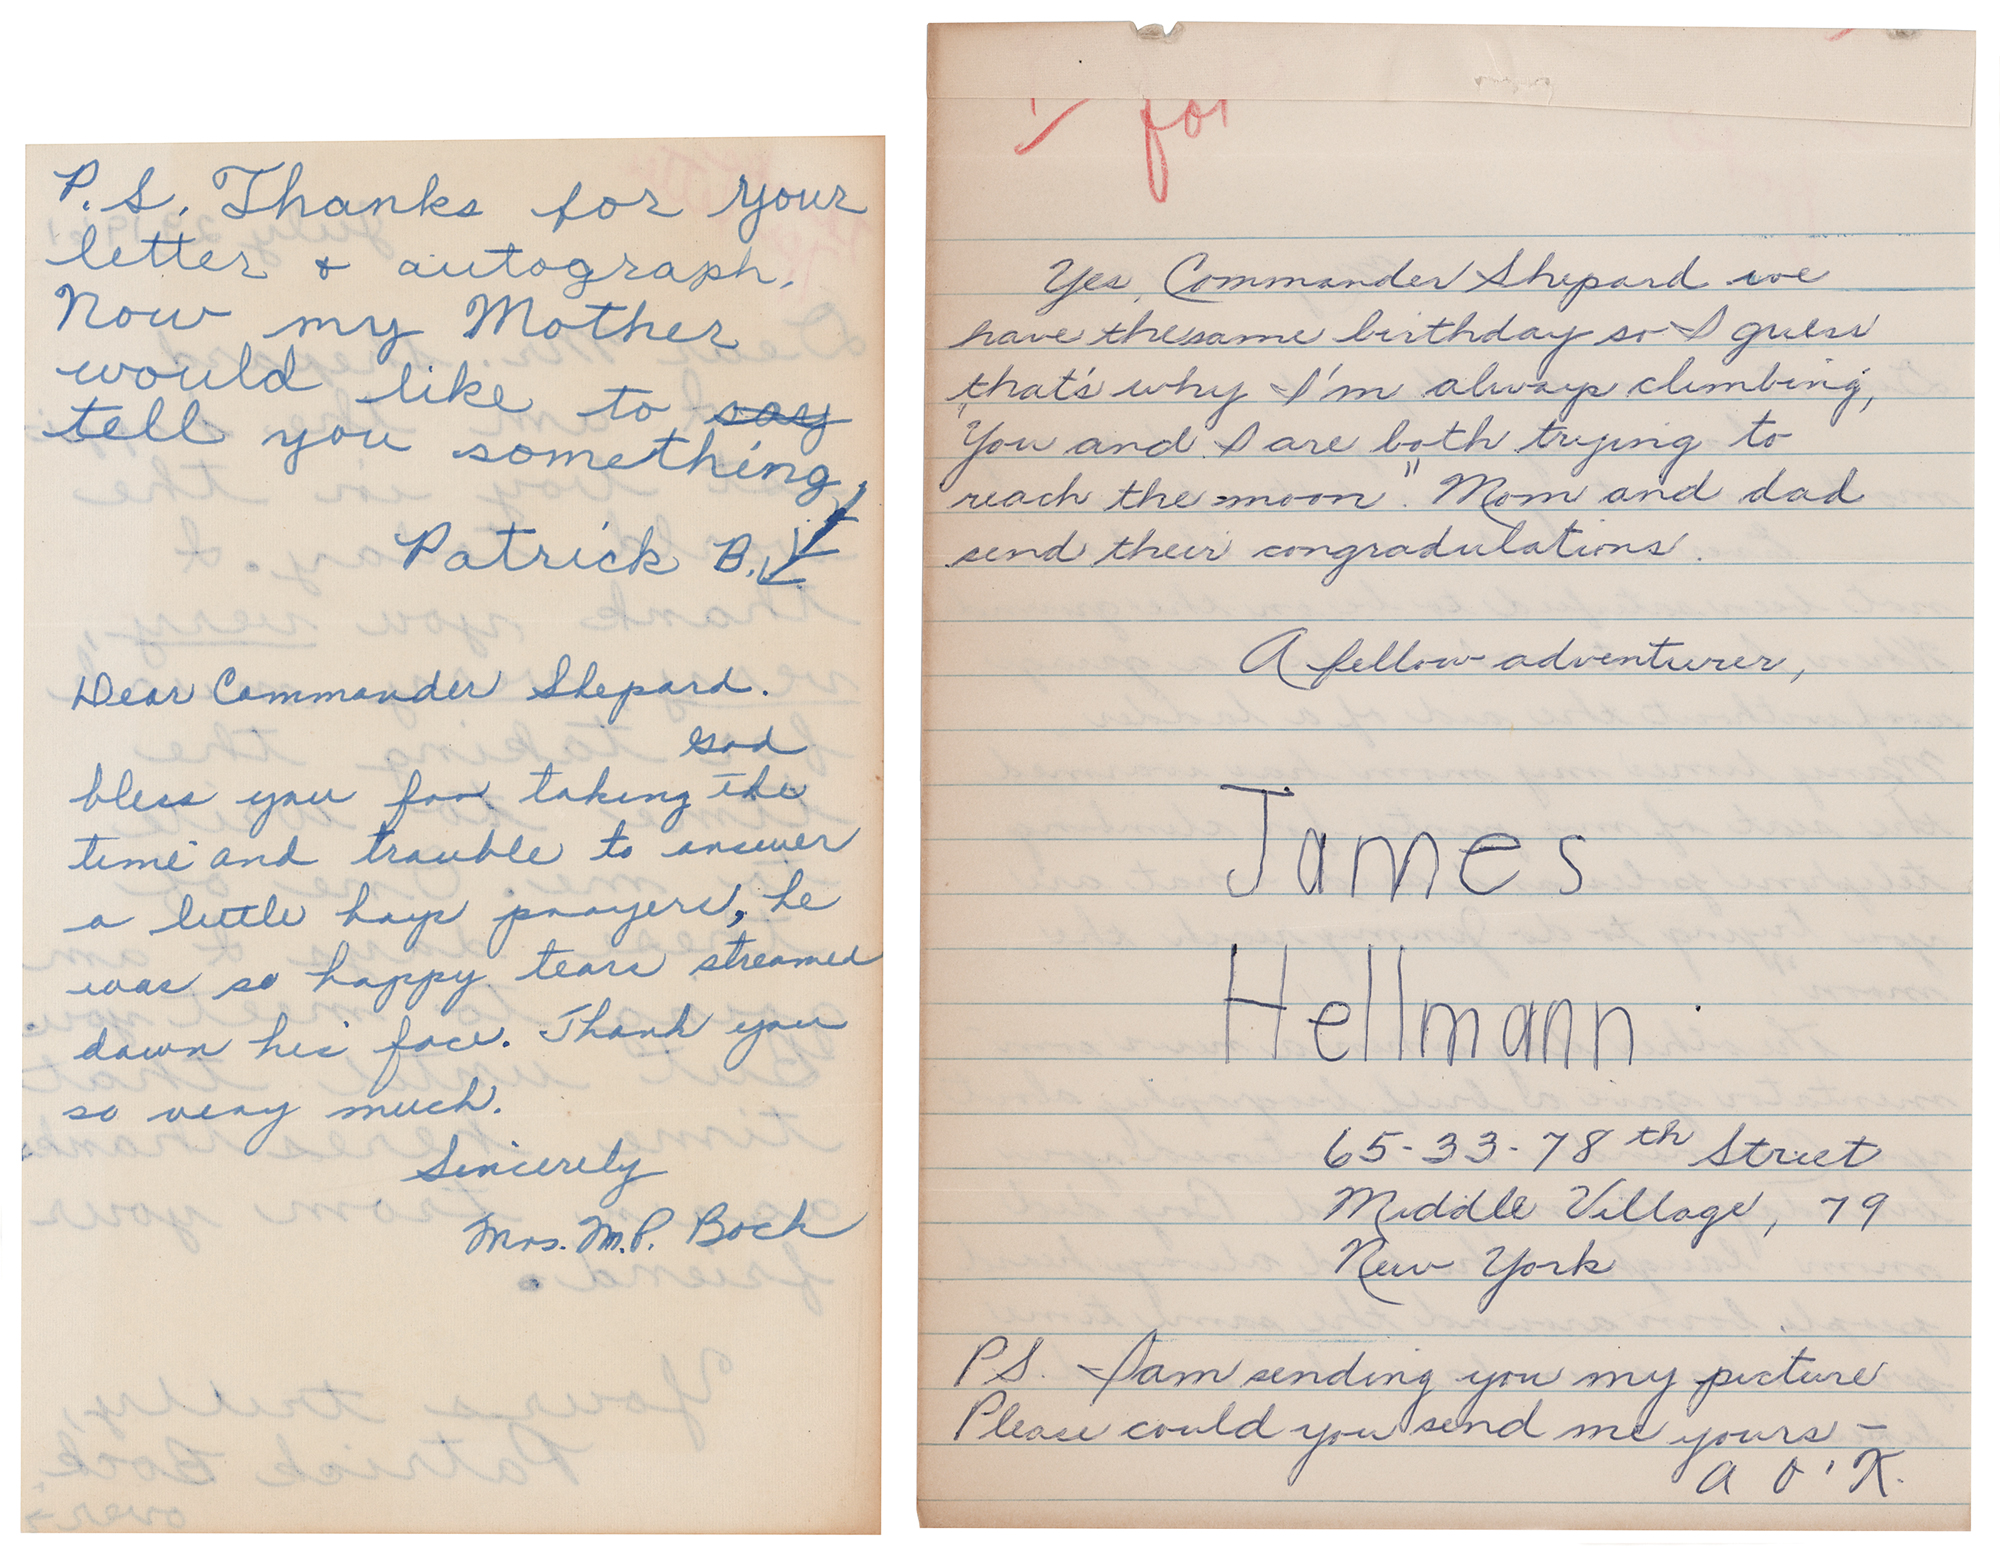 P.S. Thanks for your
letter & autograph.
Now my Mother
would like to say
tell you something
Patrick B.
Dear Commander Shepard.
God
bless you for taking the
time and trouble to answer
a little boys prayers, he
was so happy tears streamed
down his face. Thank you
so very much.
Sincerely
Mrs. M.P. Bock
for
Yes, Commander Shepard we
have the same birthday so I guess
that's why I'm always climbing,
"You and I are both trying to
reach the moon". Mom and dad
send their congradulations.
A fellow adventurer,
James
Hellmann.
65-33-78th Street
Middle Village, 79
New York
PS. I am sending you my picture
Please could you send me yours –
A O'K.